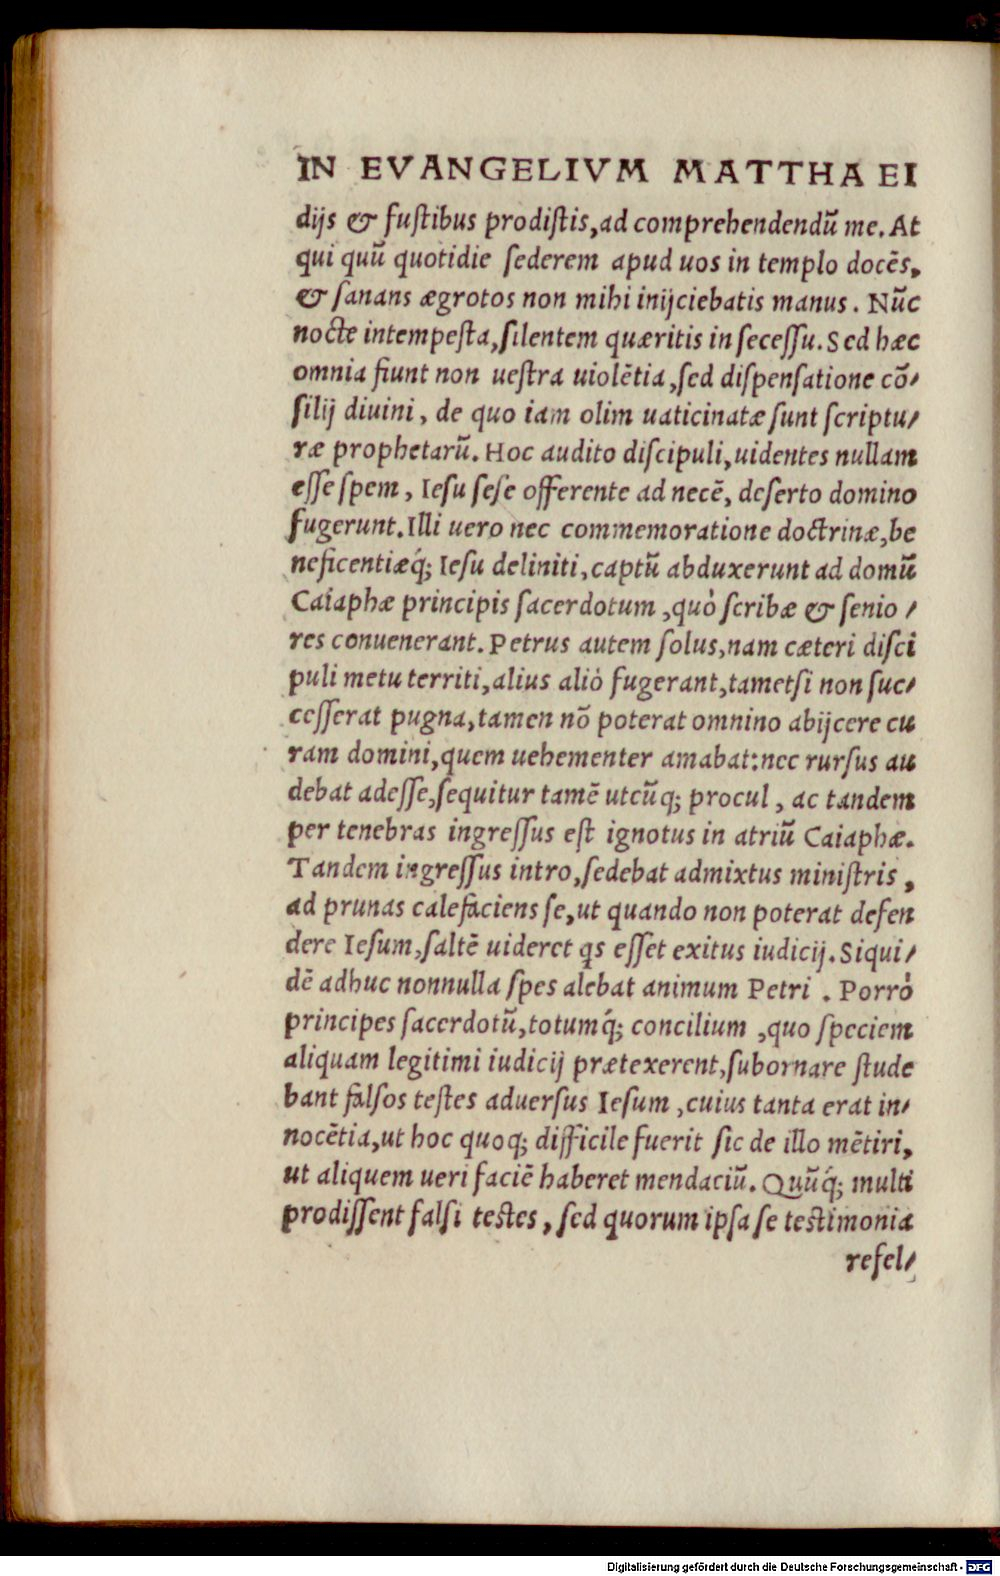 IN EVANGELIVM MATTHAEI
dijs & fustibus prodistis, ad comprehendendū me. At
qui quū quotidie sederem apud uos in templo docēs,
& sanans ægrotos non mihi inijciebatis manus. Nūc
nocte intempesta, silentem quæritis in secessu. Sed hæc
omnia fiunt non uestra uiolētia, sed dispensatione cō/
silij diuini, de quo iam olim uaticinatæ sunt scriptu/
ræ prophetarū. Hoc audito discipuli, uidentes nullam
esse spem, Iesu sese offerente ad necē, deserto domino
fugerunt. Illi uero nec commemoratione doctrinæ, be
neficentiæq́; Iesu deliniti, captū abduxerunt ad domū
Caiaphæ principis sacerdotum, quò scribæ & senio /
res conuenerant. Petrus autem solus, nam cæteri disci
puli metu territi, alius aliò fugerant, tametsi non suc/
cesserat pugna, tamen nō poterat omnino abijcere cu
ram domini, quem uehementer amabat: nec rursus au
debat adesse, sequitur tamē utcūq; procul, ac tandem
per tenebras ingressus est ignotus in atriū Caiaphæ.
Tandem ingressus intro, sedebat admixtus ministris,
ad prunas calefaciens se, ut quando non poterat defen
dere Iesum, saltē uideret qs esset exitus iudicij. Siqui/
dē adhuc nonnulla spes alebat animum Petri. Porrò
principes sacerdotū, totumq́; concilium, quo speciem
aliquam legitimi iudicij prætexerent, subornare stude
bant falsos testes aduersus Iesum, cuius tanta erat in/
nocētia, ut hoc quoq; difficile fuerit sic de illo mētiri,
ut aliquem ueri faciē haberet mendaciū. Quūq́; multi
prodissent falsi testes, sed quorum ipsa se testimonia
refel/
Digitalisierung gefördert durch die Deutsche Forschungsgemeinschaft - DFG